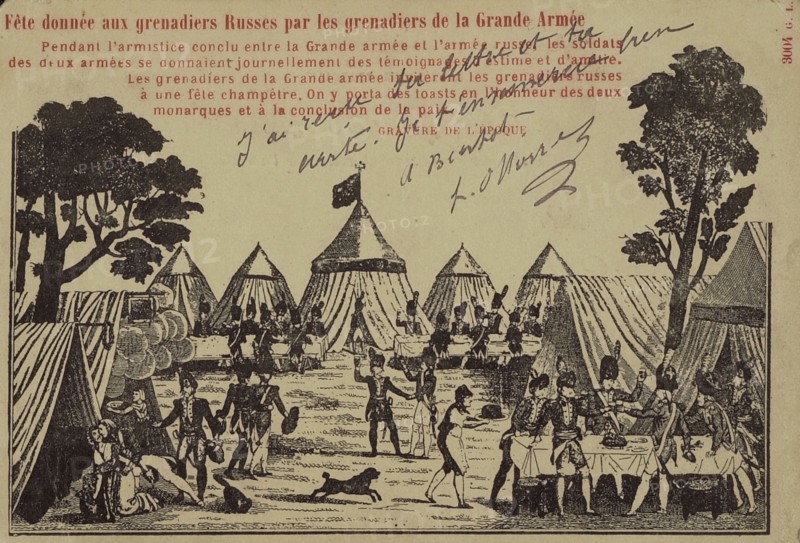 Fête donnée aux grenadiers Russes par les grenadiers de la Grande Armée
Pendant l'armistice conclu entre la Grande armée et l'armée russe, les soldats
des deux armées se donnaient journellement des témoignages d'estime et d'amitié.
Les grenadiers de la Grande armée invitèrent les grenadiers russes
à une fête champêtre. On y porta des toasts en l'honneur des deux
monarques et à la conclusion de la paix.
GRAVURE DE L'ÉPOQUE
3004 G. L.
J'ai reçu ta lettre et ta
carte. Je
A Bientôt
PHOTO:2